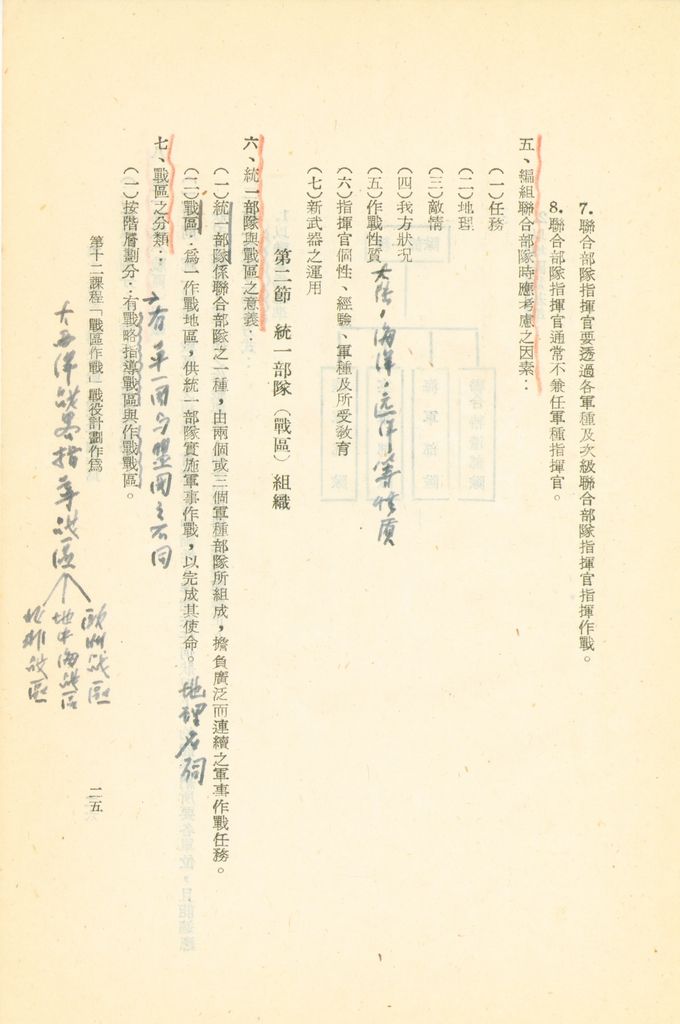 7.聯合部隊指揮官要透過各軍種及次級聯合部隊指揮官指揮作戰。
8.聯合部隊指揮官通常不兼任軍種指揮官。
五、編組聯合部隊時應考慮之因素：
（一）任務
（二）地理
（三）敵情
（四）我方狀況
（五）作戰性質
大陸，海洋，远洋等性质
（六）指揮官個性、經驗、軍種及所受教育
（七）新武器之運用
第二節 統一部隊（戰區）組織
六、統一部隊與戰區之意義：
（一）統一部隊係聯合部隊之一種，由兩個或三個軍種部隊所組成，擔負廣泛而連續之軍事作戰任務。
（二）戰區：爲一作戰地區，供統一部隊實施軍事作戰，以完成其使命。
地理名詞
七、戰區之分類：
（一）按階層劃分：有戰略指導戰區與作戰戰區。
有單一國与盟國之不同
第十二課程「戰區作戰」戰役計劃作爲
二五
大西洋战略指导战區
歐洲战區
地中海战區
北非战區